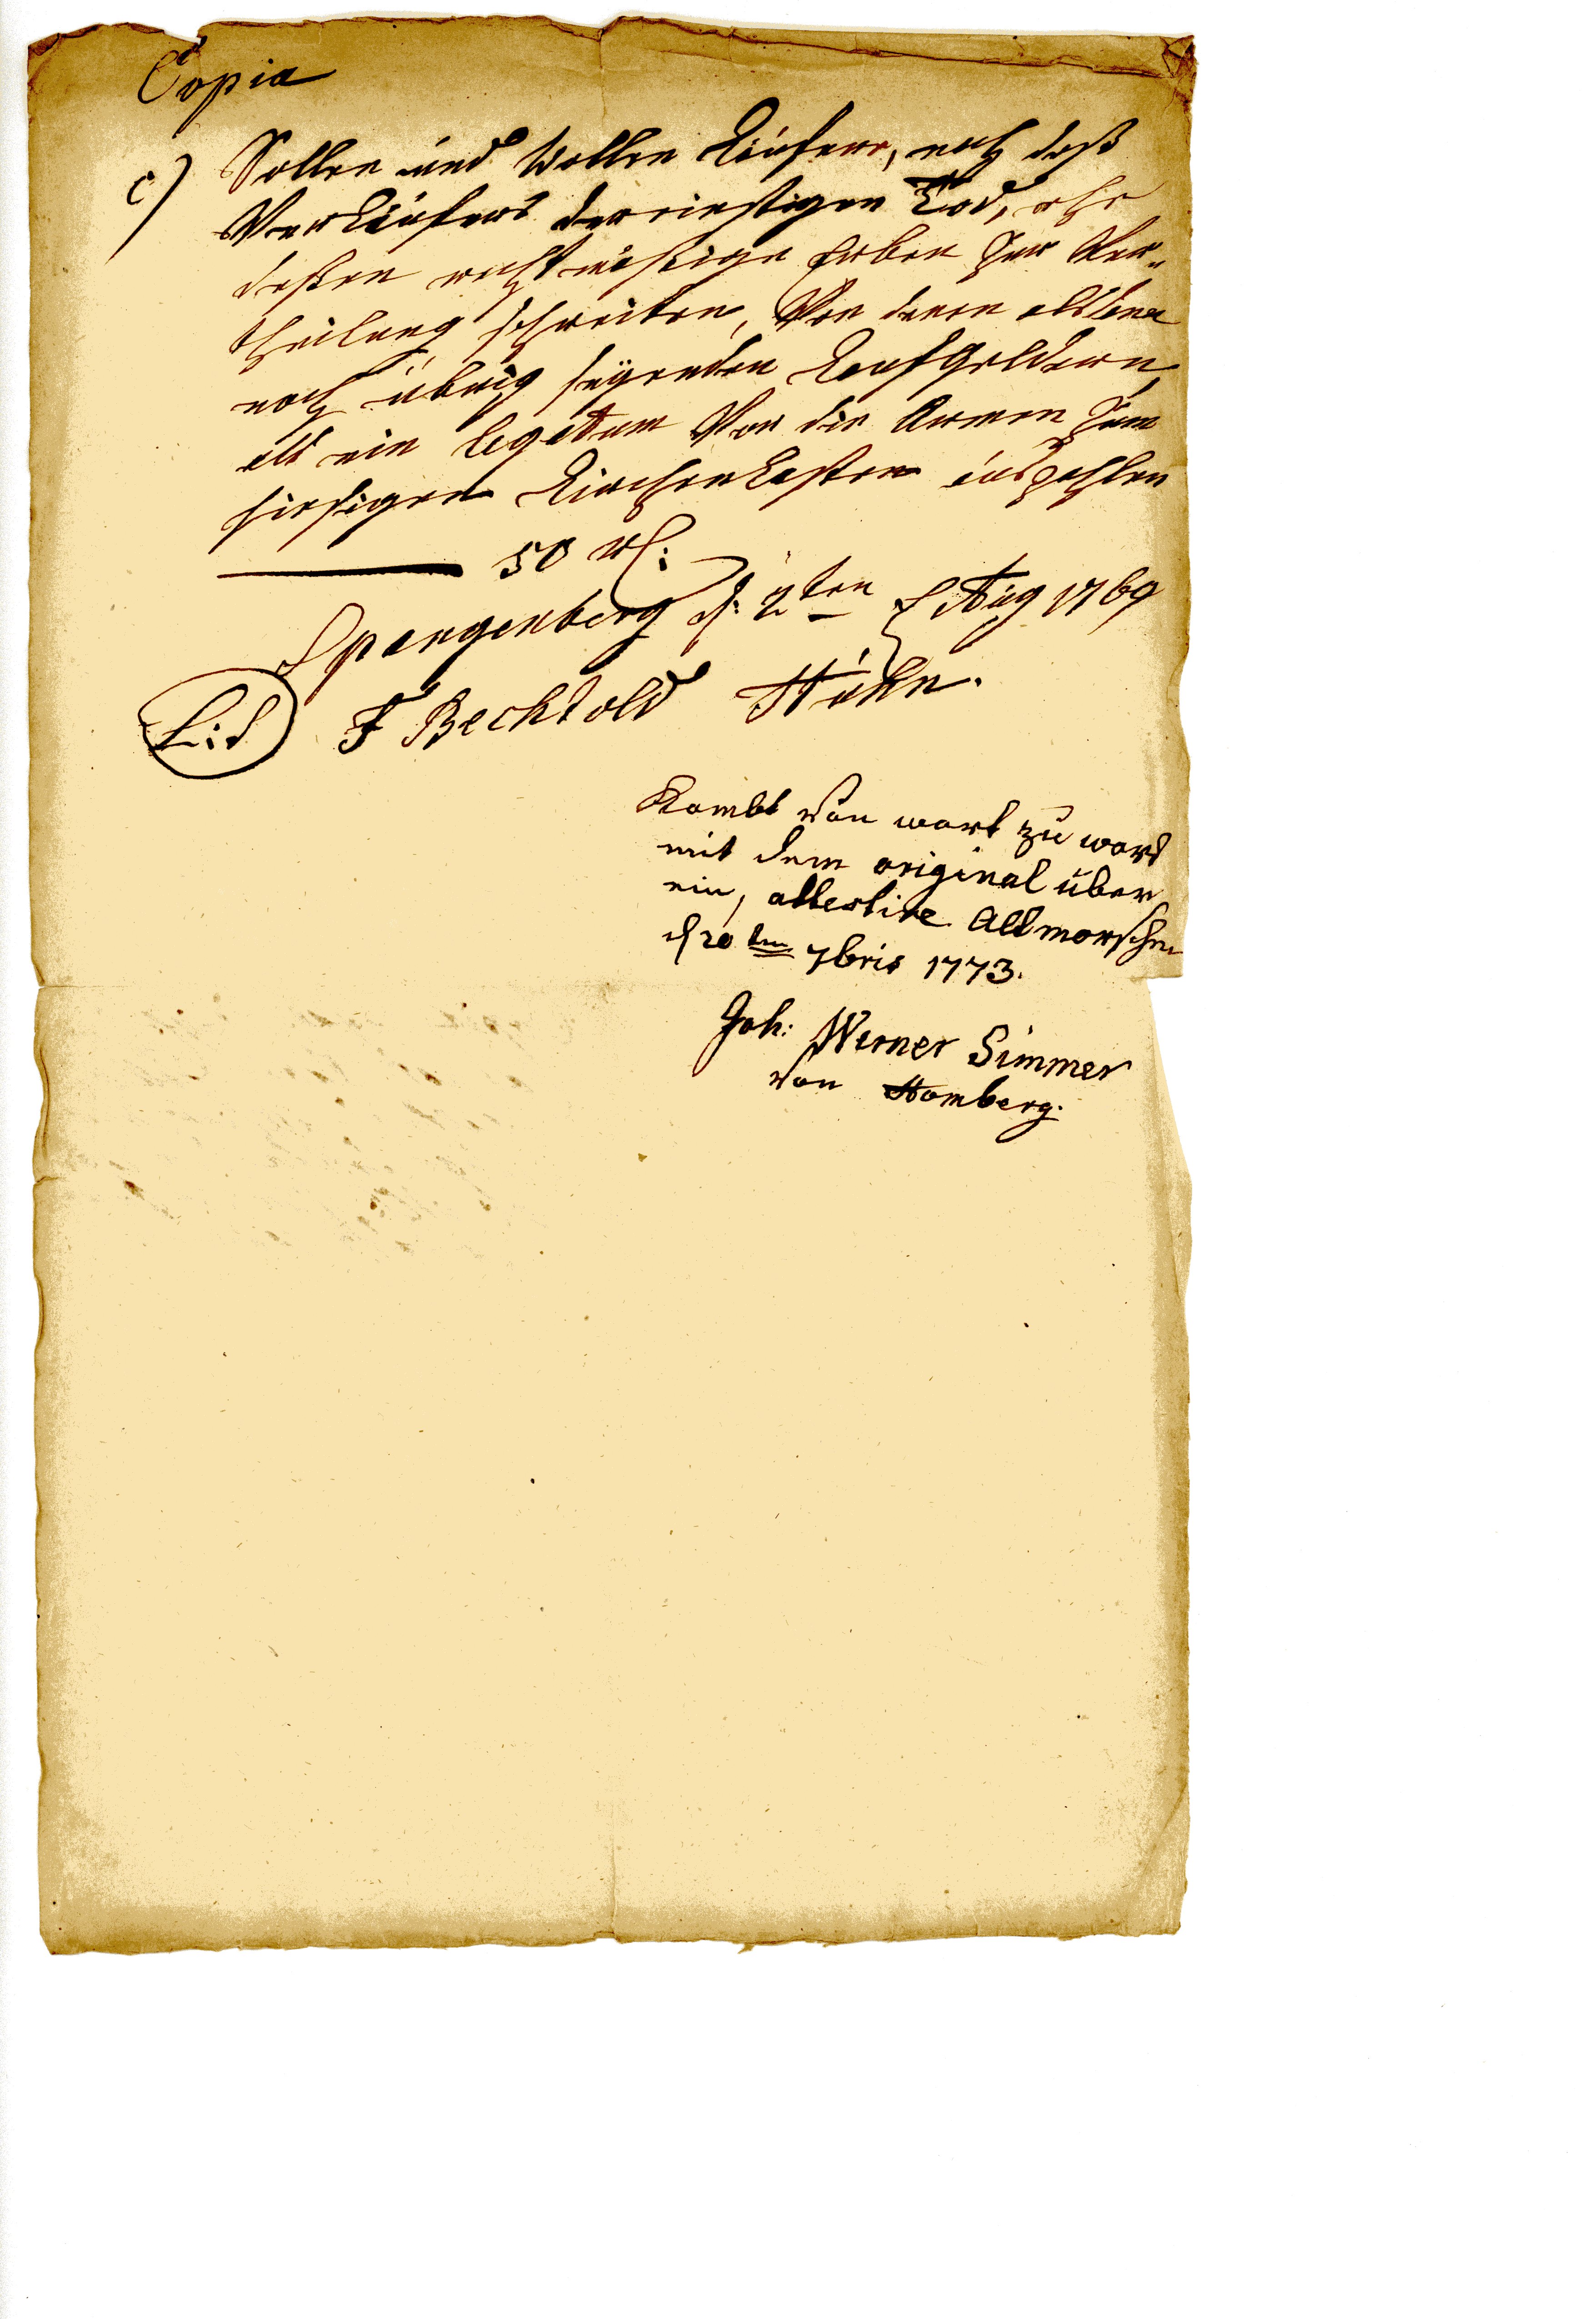 Copia
c) Sollen und Wollen Käufere, nach deß
Verkäufers dereinstigen Tod, ehe
deßen rechtmäßige Erben zur Ver-
theilung schreiten, Von denen alsdann
noch übrig seÿenden Kauf Geldern,
als ein legatum Vor die Armen zum
hiesigen Kirchen Kasten auszahlen
50 rl:
Spangenberg d: 2ten Aug 1769
L:S F Bechtold Höhn.
Kombt von wort zu wort
mit dem original über
ein, attestire Altmorschen
d 20ten 7bris 1773.
Joh: Werner Simmer
von Homberg.